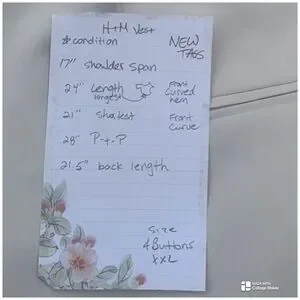 H+M Vest
#condition NEW TAGS
17" shoulder span
24" Length longest Front curved hem
21" shortest Front Curve
28" P-t-P
21.5" back length
Size
4 Buttons
XXL
MADE WITH
Collage Maker